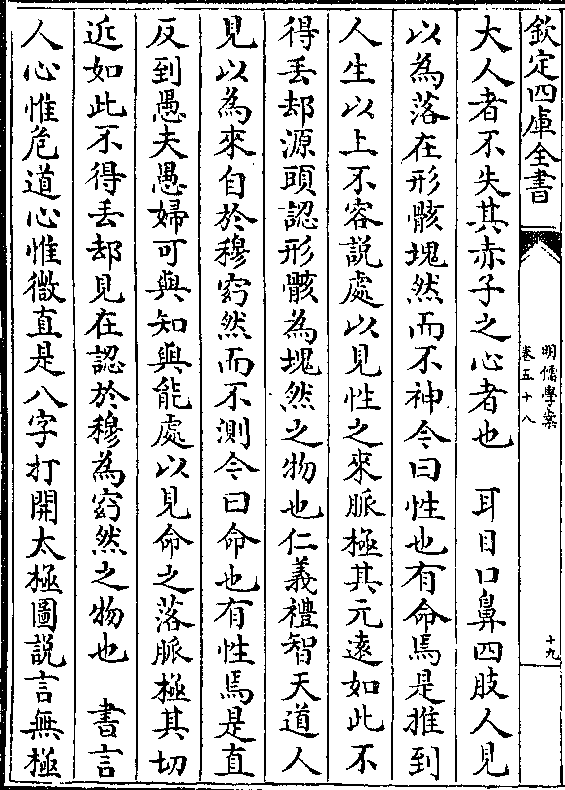 欽定四庫全書
明儒學案
卷五十八
十九
大人者不失其赤子之心者也　耳目口鼻四肢人見
以為落在形骸塊然而不神今曰性也有命焉是推到
人生以上不容説處以見性之來脈極其元遠如此不
得丢却源頭認形骸為塊然之物也仁義禮智天道人
見以為來自於穆窈然而不測今曰命也有性焉是直
反到愚夫愚婦可與知與能處以見命之落脈極其切
近如此不得丢却見在認於穆為窈然之物也　書言
人心惟危道心惟微直是八字打開太極圖説言無極